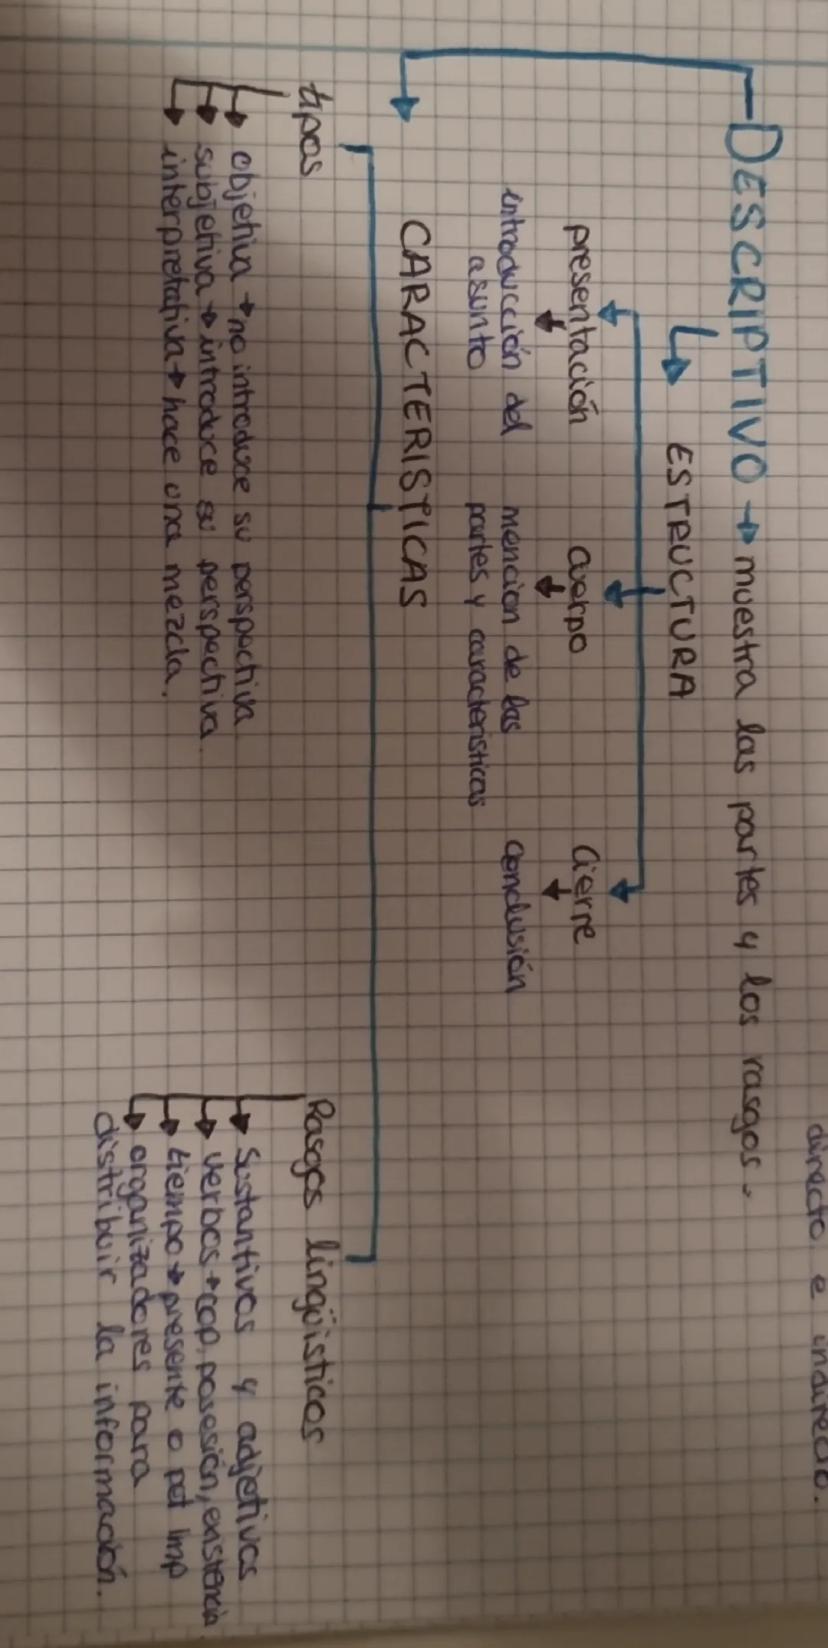 directo e indirecto.
DESCRIPTIVO → muestra las partes y los rasgos.
ESTRUCTURA
presentación cuerpo cierre
introducción del mencion de las conclusión
asunto partes y caracteristicas
CARACTERISTICAS
tipos Rasgos lingüisticos
objetiva → no introduce su perspectiva
subjetiva → introduce su perspectiva.
interpretativa → hace una mezcla.
Sustantivos y adjetivos
verbos → cop, posesión, existencia
tiempo → presente o pret imp
organizadores para
distribuir la información.